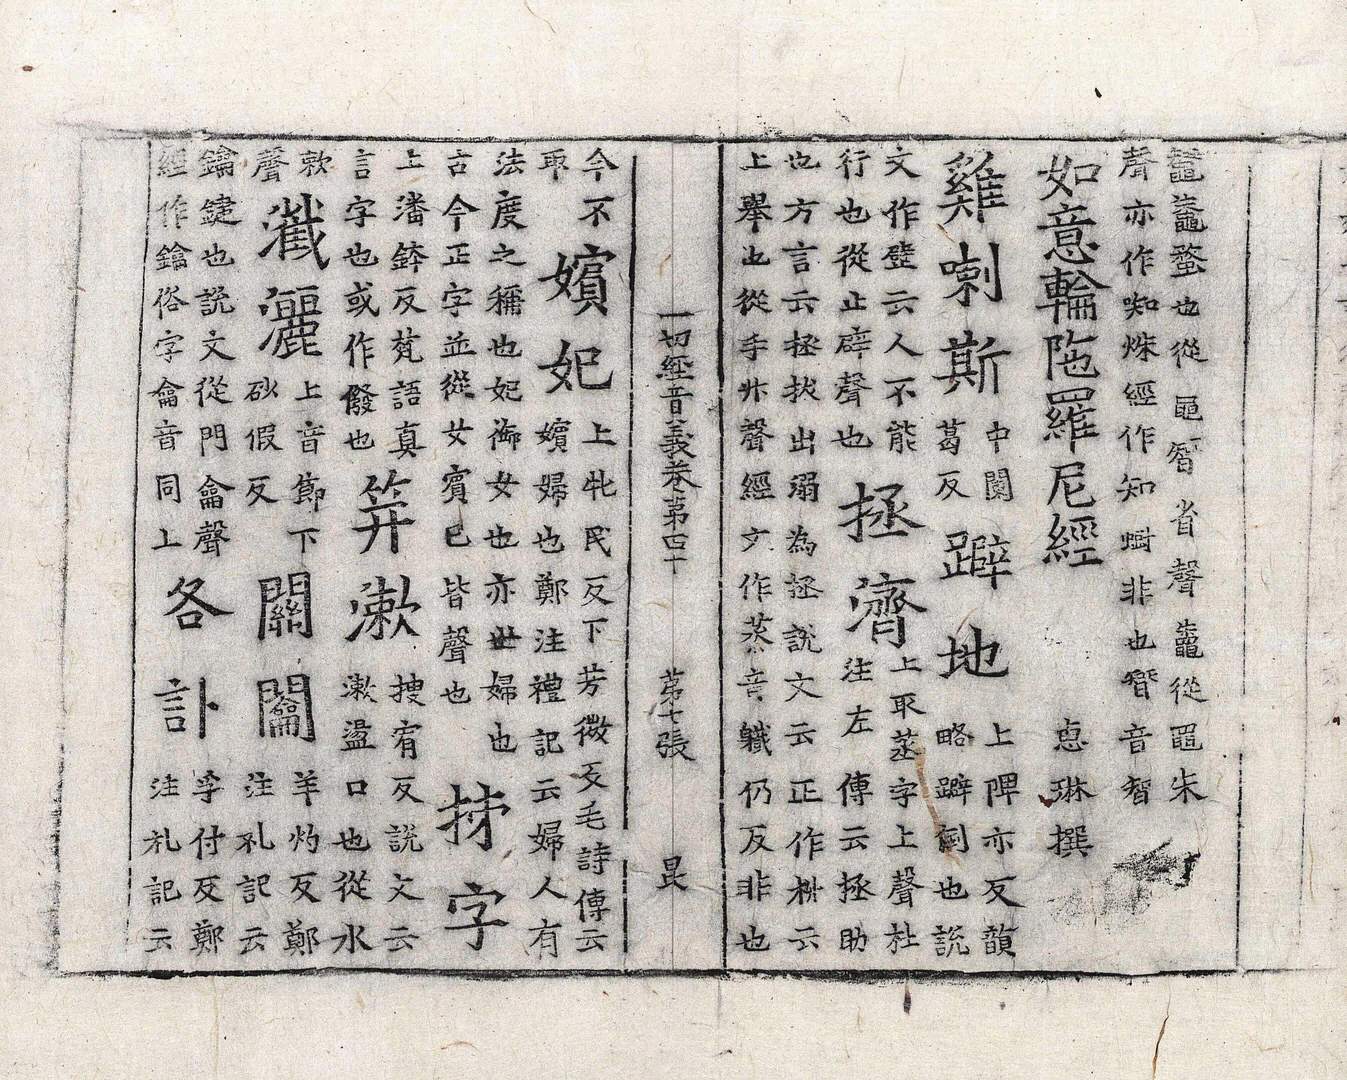 鼅鼄蝥也從黽𥏼省聲鼄從黽朱
聲亦作蜘蛛經作知蜘非也𥏼音智
如意輪陁羅尼經 惠琳撰
雞喇斯 中闌葛反 躃地 上陴亦反韻略躃倒也說
文作壁云人不能行也從止辟聲也 拯濟 上取蒸字上聲杜注左傳云拯助
也方言云拯拔出溺為拯說文云正作抍云
上舉也從手廾聲經文作蒸音軄仍反非也
一切經音義卷第四十 第七張 昃
今不取 嬪妃 上牝民反下芳微反毛詩傳云嬪婦也鄭注禮記云婦人有
法度之稱也妃御女也亦世婦也
古今正字並從女賓巳皆聲也 㧞字
上潘鉢反梵語真言字也或作廢也 笄漱 搜宥反說文云漱盪口也從水
欶聲 瀸灑 上音節下砍假反 關闔 羊灼反鄭注礼記云
鑰鍵也說文從門龠聲經作鑰俗字龠音同上 各訃 孚付反鄭注礼記云